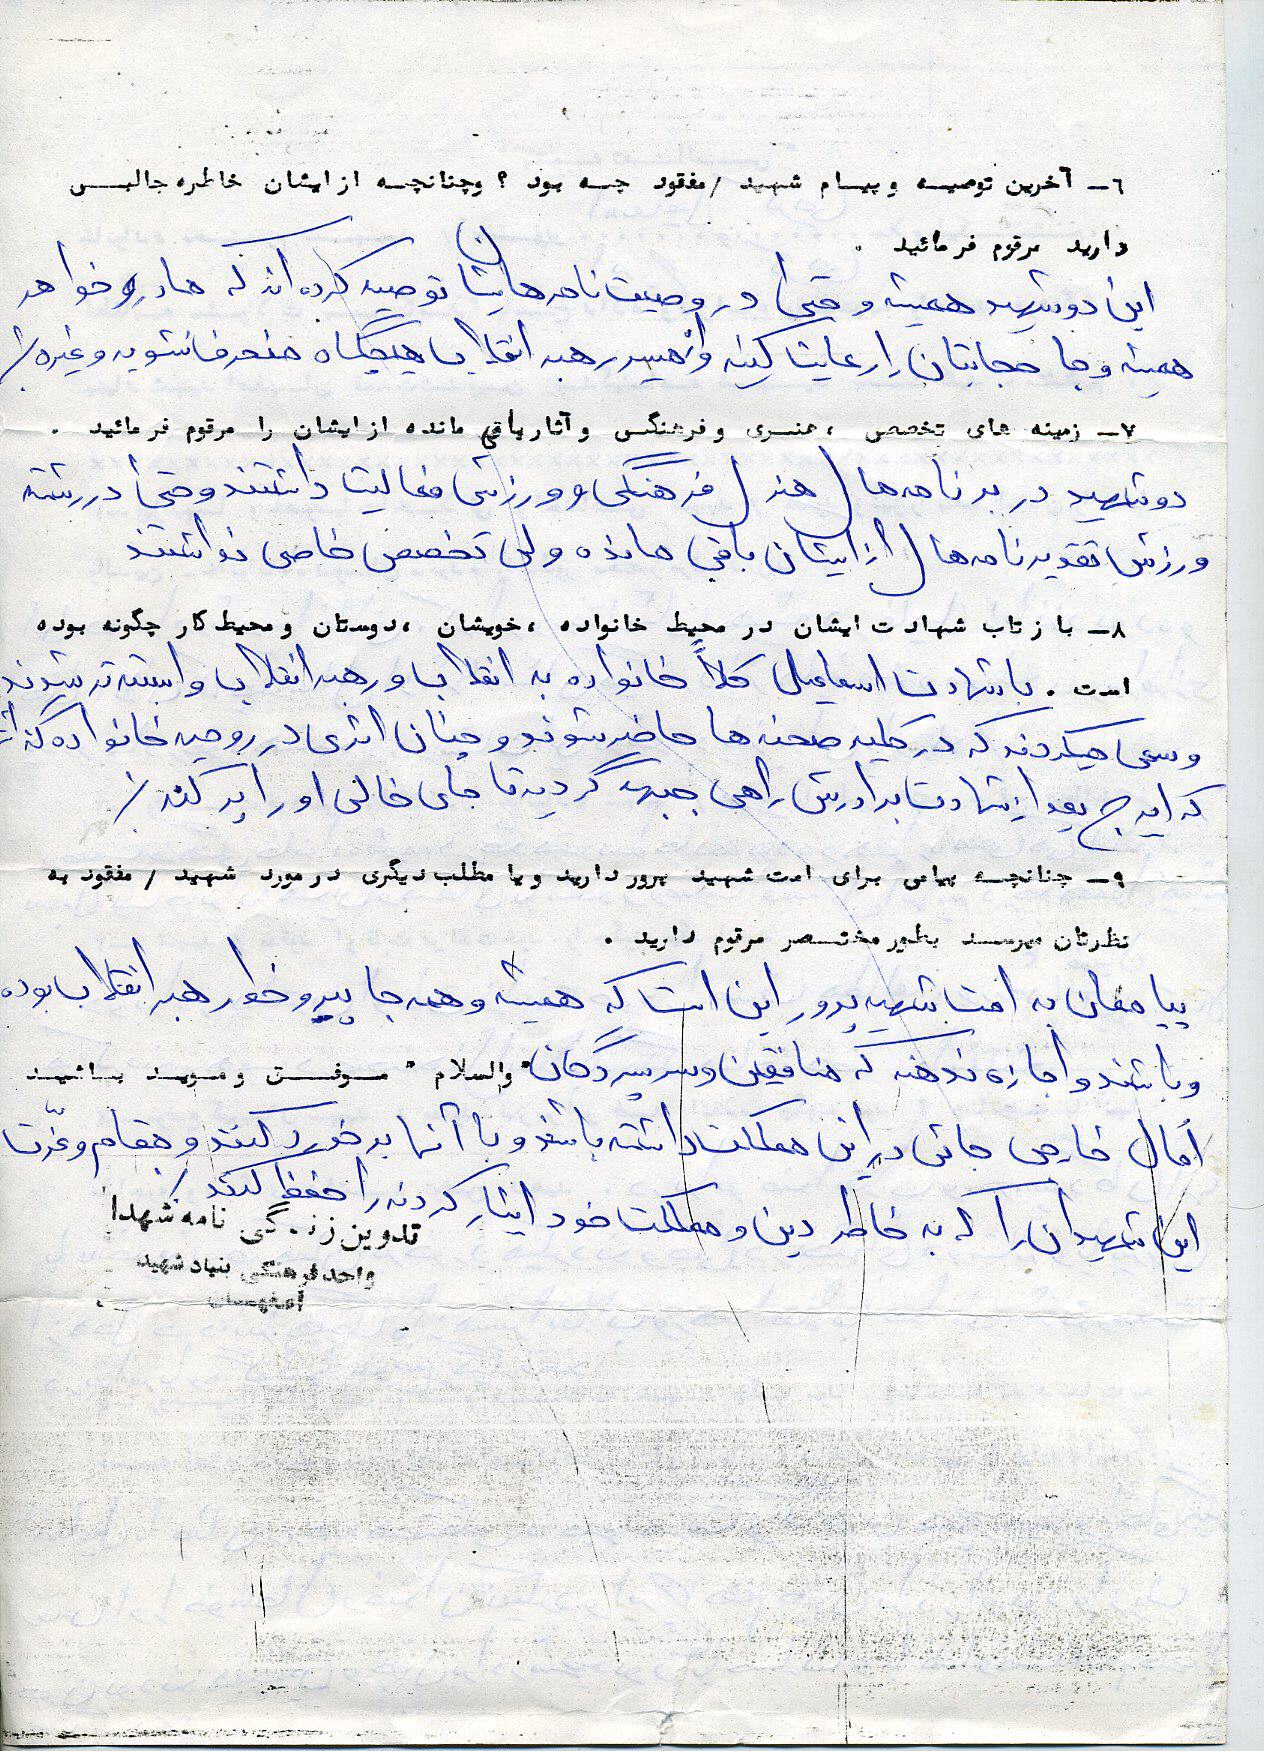 ٦ـ آخرین توصیـه و پیـام شهید /مفقود چـه بود ؟ وچنانچـه از ایشان خاطره جالبـی
دارید مرقوم فرمائید .
این دو شهید همیشه و حتی در وصیت نامه هایشان توصیه کرده اند که مادر و خواهر
همیشه و جا حجابتان را رعایت کنید و از مسیر رهبر انقلاب هیچگاه منحرف نشوید و غیره
٧ـ زمینه های تخصصی ، هنـری و فرهنگی و آثار باقی مانده از ایشان را مرقوم فرمائید .
دو شهید در برنامه ها (هنر) فرهنگی و ورزشی فعالیت داشتند و حتی در رشته
ورزش تقدیرنامه ها از ایشان باقی مانده ولی تخصص خاصی نداشتند
٨ـ باز تاب شهادت ایشان در محیط خانواده ، خویشان ، دوستان و محیط کار چگونه بوده
است . با شهادت اسماعیل کلاً خانواده به انقلاب و رهبر انقلاب وابسته تر شدند
و سعی میکردند که در کلیه صحنه ها حاضر شوند و چنان اثری در روحیه خانواده
که ایرج بعد از شهادت برادرش راهی جبهه گردید تا جای خالی او را پر کند
٩ـ چنانچـه پیامی برای امت شهید پرور دارید و یا مطلب دیگری در مورد شهید / مفقود به
نظرتان میرسـد بطور مختـصر مرقوم دارید .
پیاممان به امت شهید پرور این است که همیشه و همه جا پیرو خط رهبر انقلاب بوده
و باشند و اجازه ندهند که منافقین و سرسپردگان " والسلام " مـوفـق و مـویـد باشیـد
خارجی جائی در این مملکت داشته باشند و با آنها برخورد کنند و مقام و عزّت
این شهیدان را که به خاطر دین و مملکت خود ایثار کردند را حفظ کنند
تدوین زندگی نامه شهدا
واحد فرهنگی بنیاد شهید
اصفهان